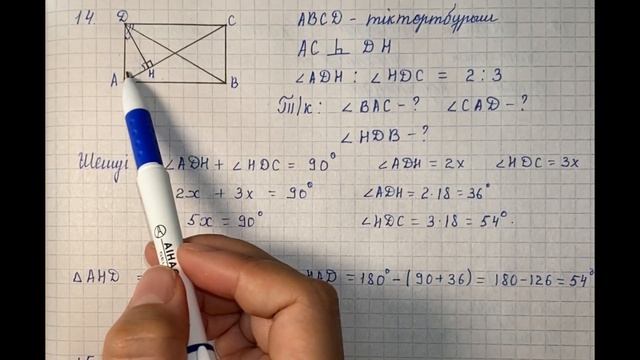 14.
D C
A H B
ABCD - тіктөртбұрыш
AC ⊥ DH
∠ADH : ∠HDC = 2 : 3
Т/к: ∠BAC - ? ∠CAD - ?
∠HDB - ?
Шешуі ∠ADH + ∠HDC = 90° ∠ADH = 2x ∠HDC = 3x
2x + 3x = 90° ∠ADH = 2·18 = 36°
5x = 90° ∠HDC = 3·18 = 54°.
△AHD = HAD = 180° - (90+36) = 180-126 = 54°